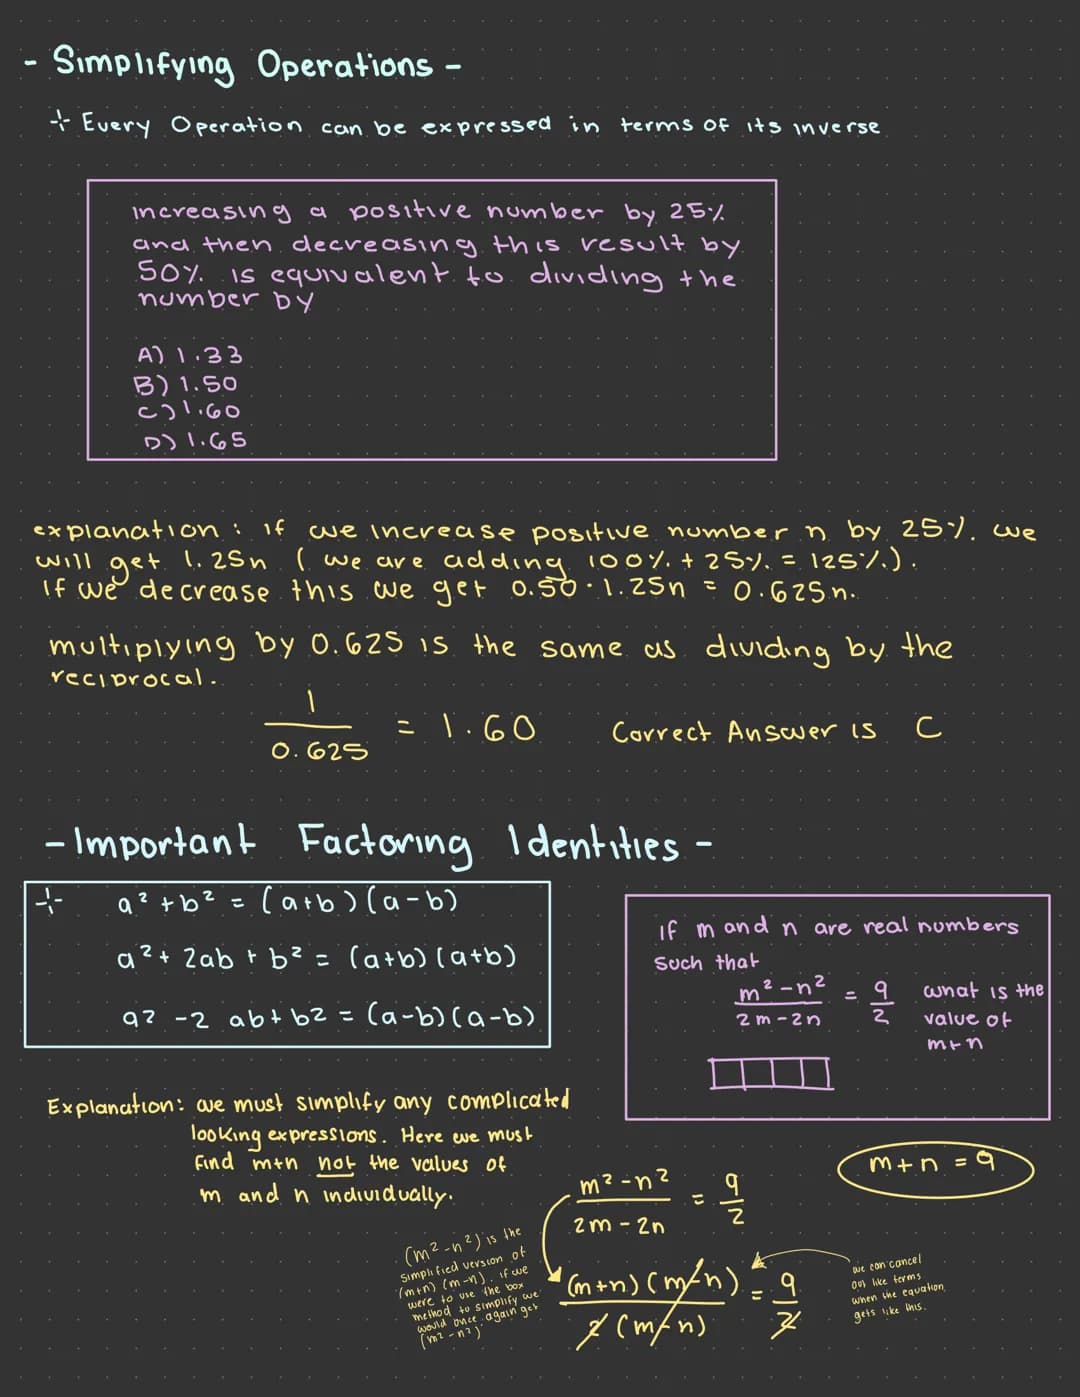 - Simplifying Operations -
+ Every Operation can be expressed in terms of its inverse
increasing a positive number by 25%
and then decreasing this result by
50% is equivalent to dividing the
number by
A) 1.33
B) 1.50
C) 1.60
D) 1.65
explanation: if we increase positive number n by 25% we
will get 1.25n (we are adding 100% + 25% = 125%).
If we decrease this we get 0.50 · 1.25n = 0.625n.
multiplying by 0.625 is the same as dividing by the
reciprocal.
1
0.625
= 1.60
Correct Answer is C
- Important Factoring Identities -
+ a² + b² = (a+b)(a-b)
a² + 2ab + b² = (a+b)(a+b)
a² - 2ab + b² = (a-b)(a-b)
If m and n are real numbers
such that
m² - n² / 2m - 2n = 9/2 what is the
value of
m+n
Explanation: we must simplify any complicated
looking expressions. Here we must
find m+n not the values of
m and n individually.
m+n = 9
m² - n² / 2m - 2n = 9/2
(m²-n²) is the
simplified version of
(m+n)(m-n). if we
were to use the box
method to simplify we
would once again get
(m²-n²).
(m+n)(m-n) / 2(m-n) = 9/2
we can cancel
out like terms
when the equation
gets like this.